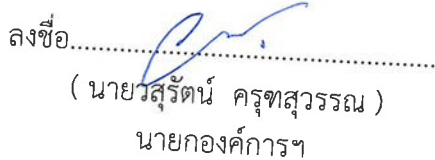 ลงชื่อ............................................................
( นายวสุรัตน์ ครุฑสุวรรณ )
นายกองค์การฯ